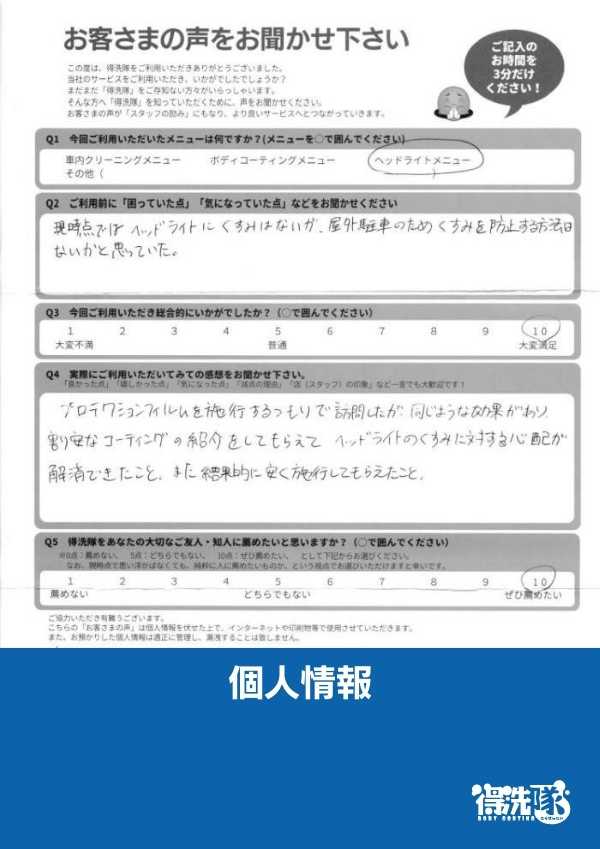 お客さまの声をお聞かせ下さい
この度は、得洗隊をご利用いただきありがとうございました。
当社のサービスをご利用いただき、いかがでしたでしょうか?
まだまだ「得洗隊」をご存知ない方々がいらっしゃいます。
そんな方へ「得洗隊」を知っていただくために、声をお聞かせください。
お客さまの声が「スタッフの励み」にもなり、より良いサービスへとつながっていきます。
ご記入の
お時間を
3分だけ
ください!
Q1 今回ご利用いただいたメニューは何ですか?(メニューを○で囲んでください)
車内クリーニングメニュー ボディコーティングメニュー ヘッドライトメニュー
その他( )
Q2 ご利用前に「困っていた点」「気になっていた点」などをお聞かせください
現時点ではヘッドライトにくすみはないが、屋外駐車のためくすみを防止する方法は
ないかと思っていた。
Q3 今回ご利用いただき総合的にいかがでしたか?(○で囲んでください)
1 2 3 4 5 6 7 8 9 10
大変不満 普通 大変満足
Q4 実際にご利用いただいてみての感想をお聞かせ下さい。
「良かった点」「嬉しかった点」「気になった点」「減点の理由」「店(スタッフ)の印象」など一言でも大歓迎です!
プロテクションフィルムを施行するつもりで訪問したが、同じような効果があり、
割安なコーティングの紹介をしてもらえて ヘッドライトのくすみに対する心配が
解消できたこと、また結果的に安く施行してもらえたこと。
Q5 得洗隊をあなたの大切なご友人・知人に薦めたいと思いますか?(○で囲んでください)
※0点:薦めない、 5点:どちらでもない、 10点:ぜひ薦めたい、 として下記からお選びください。
なお、現時点で思い浮かばなくても、純粋に人に薦めたいものか、という視点でお選びいただけますと幸いです。
1 2 3 4 5 6 7 8 9 10
薦めない どちらでもない ぜひ薦めたい
ご協力いただき有難うございます。
こちらの「お客さまの声」は個人情報を伏せた上で、インターネットや印刷物等で使用させていただきます。
また、お預かりした個人情報は適正に管理し、漏洩することは致しません。
個人情報
得洗隊
BODY COATING